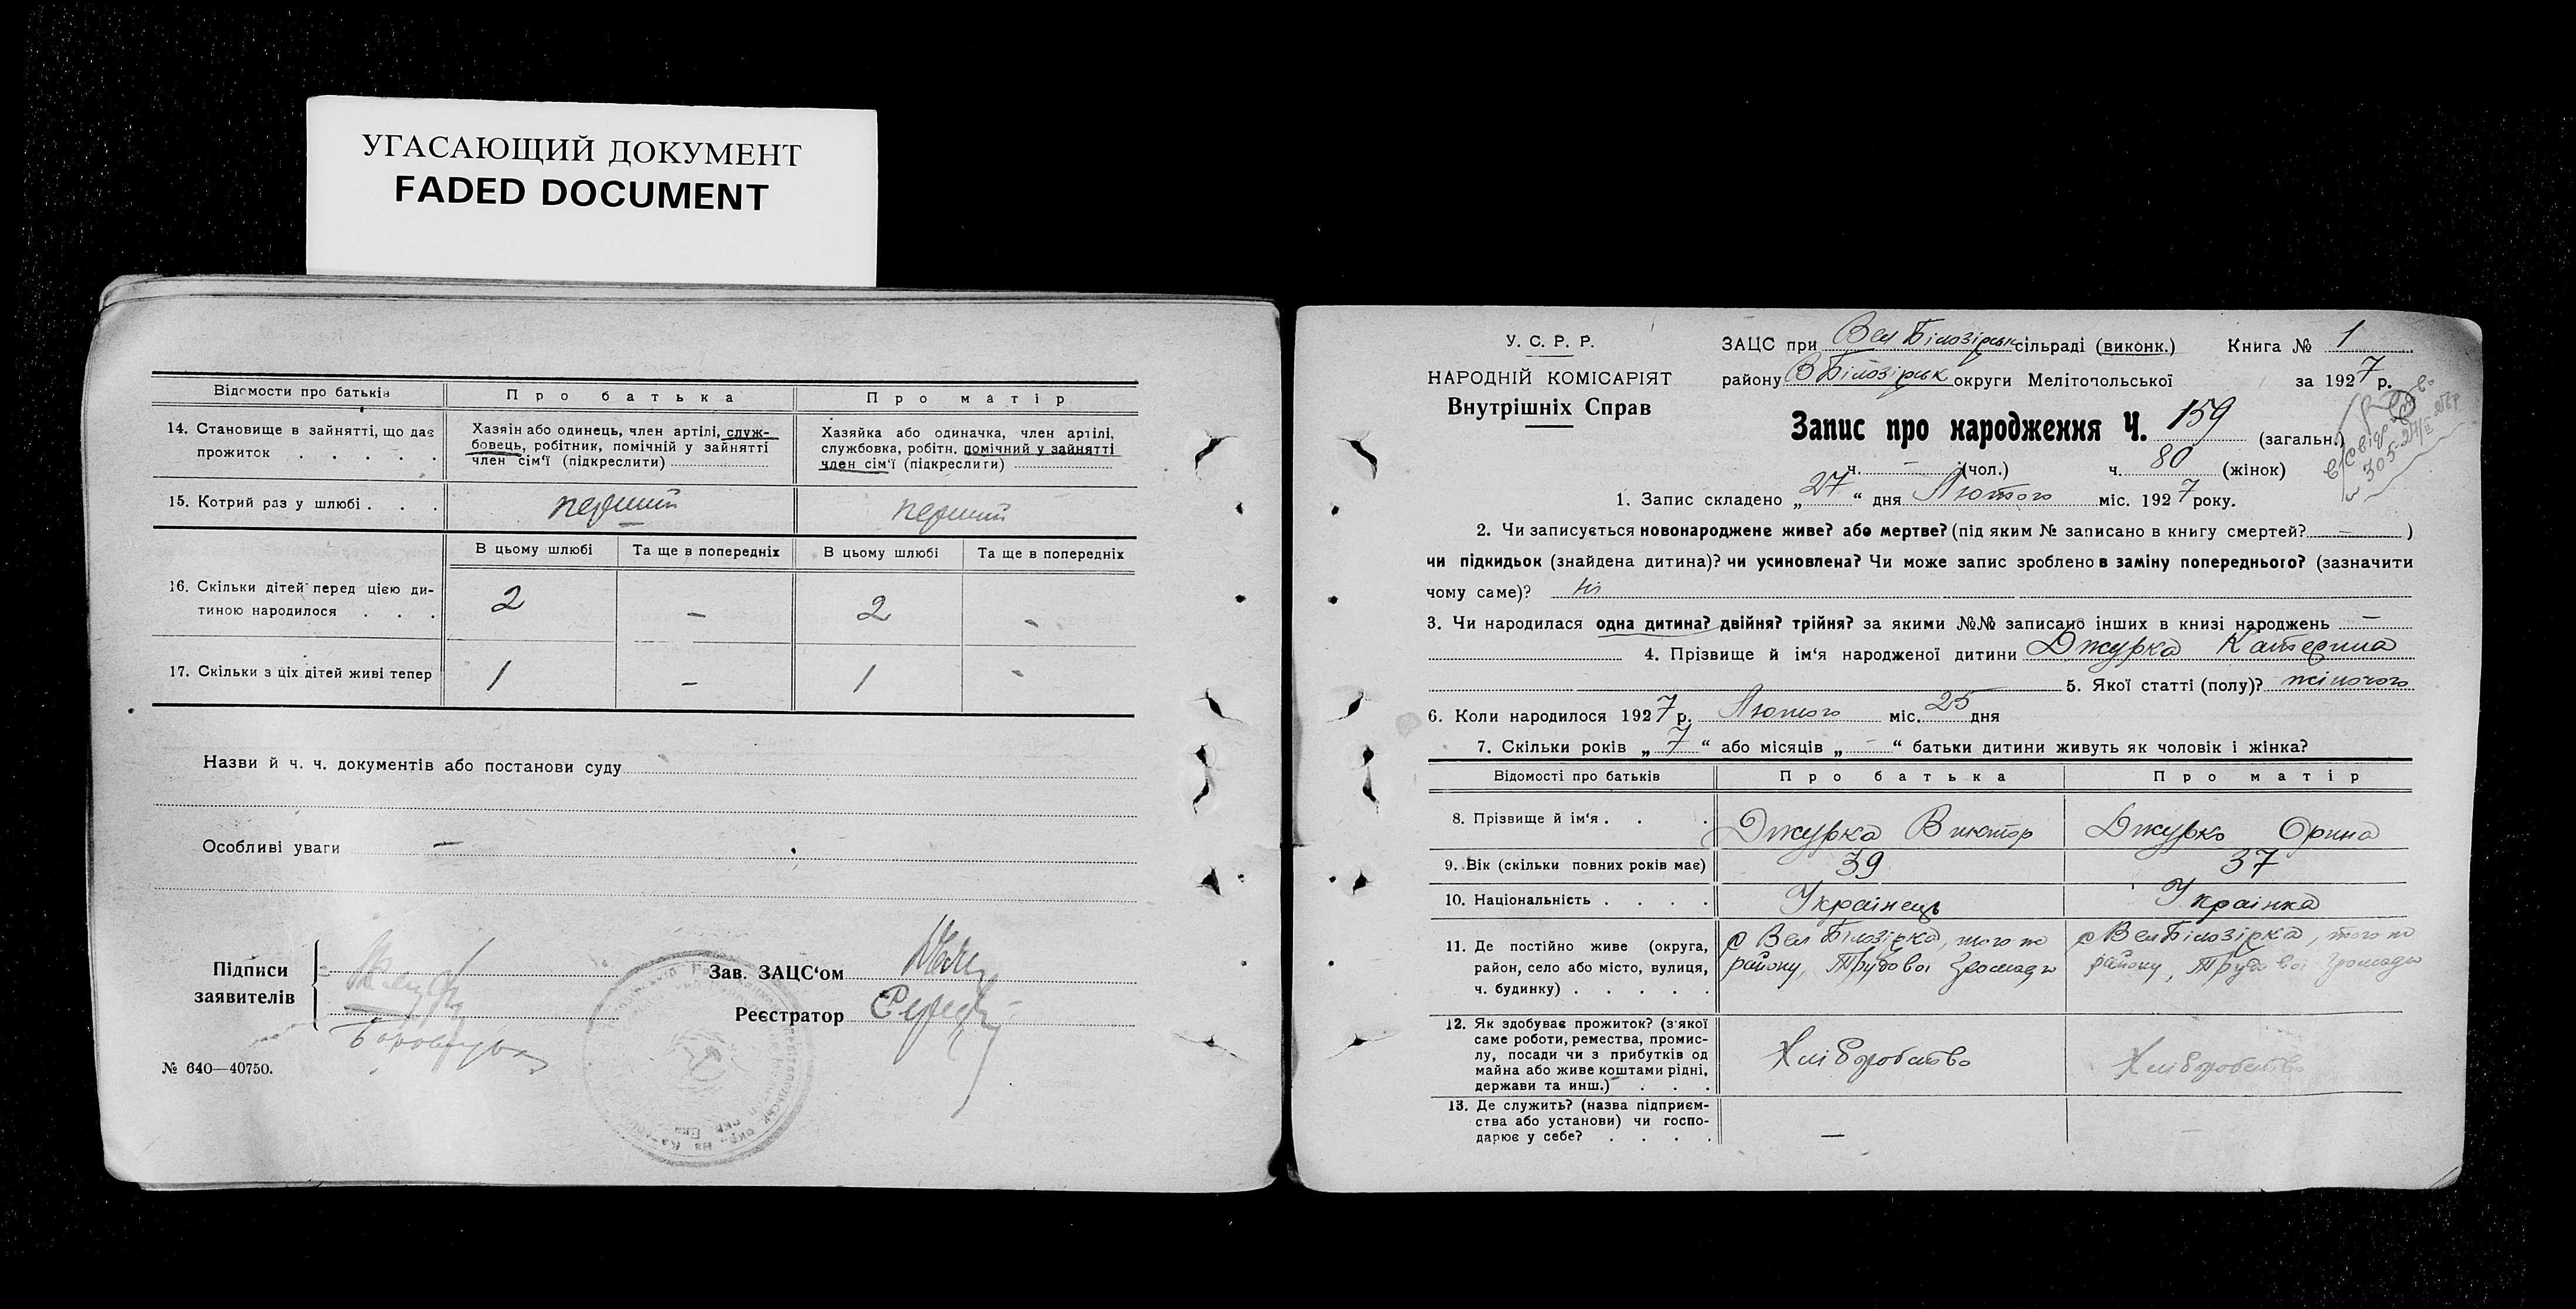 УГАСАЮЩИЙ ДОКУМЕНТ
FADED DOCUMENT
Відомости про батьків
Про батька
Про матір
14. Становище в зайнятті, що дає
прожиток . . . . .
Хазяін або одинець, член артілі, служ-
бовець, робітник, помічній у зайнятті
член сім'ї (підкреслити)
Хазяйка або одиначка, член артілі,
службовка, робітн. помічний у зайнятті
член сім'ї (підкреслити)
15. Котрий раз у шлюбі . . .
перший
перший
В цьому шлюбі
Та ще в попередніх
В цьому шлюбі
Та ще в попередніх
16. Скільки дітей перед цією ди-
тиною народилося . . .
2
–
2
-
17. Скільки з ціх дітей живі тепер
1
–
1
-
Назви й ч. ч. документів або постанови суду
Особливі уваги —
Підписи
заявителів
Зав. ЗАЦС'ом
Реєстратор
№ 640—40750.
У. С. Р. Р.
НАРОДНІЙ КОМІСАРІЯТ
Внутрішніх Справ
ЗАЦС при Вел Білозірськ сільраді (виконк.) Книга № 1
району В Білозірськ округи Мелітопольської за 1927 р.
Запис про народження Ч. 159 (загальн.)
ч. – (чол.) ч. 80 (жінок)
1. Запис складено „27“ дня Лютого міс. 1927 року.
2. Чи записується новонароджене живе? або мертве? (під яким № записано в книгу смертей? — )
чи підкидьок (знайдена дитина)? чи усиновлена? Чи може запис зроблено в заміну попереднього? (зазначити
чому саме)? ні
3. Чи народилася одна дитина? двійня? трійня? за якими №№ записано інших в книзі народжень —
4. Прізвище й ім'я народженої дитини Джурка Катерина
5. Якої статті (полу)? жіночого
6. Коли народилося 1927 р. Лютого міс. 25 дня
7. Скільки років „7“ або місяців „-“ батьки дитини живуть як чоловік і жінка?
Відомості про батьків
Про батька
Про матір
8. Прізвище й ім'я . . .
Джурка Виктор
Джурко Орина
9. Вік (скільки повних років має)
39
37
10. Національність . . . .
Українець
Українка
11. Де постійно живе (округа,
район, село або місто, вулиця,
ч. будинку) . . . . .
с Вел Білозірка, того по
району, Трудової Громади
с Вел Білозірка, того по
району, Трудової Громади
12. Як здобуває прожиток? (з якої
саме роботи, ремества, промис-
лу, посади чи з прибутків од
майна або живе коштами рідні,
держави та инш.) . . .
Хліборобство
Хліборобство
13. Де служить? (назва підприєм-
ства або установи) чи госпо-
дарює у себе? . . . .
—
—